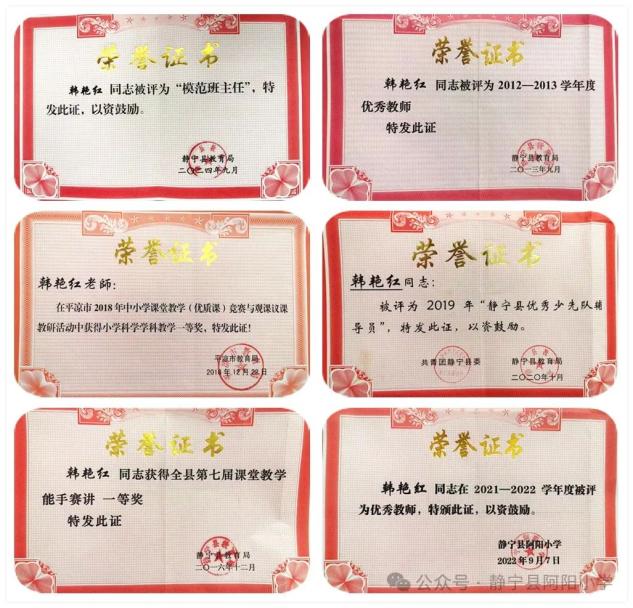 荣誉证书
韩艳红 同志被评为“模范班主任”,特
发此证,以资鼓励。
静宁县教育局
二〇二四年九月
荣誉证书
韩艳红 同志被评为2012—2013学年度
优秀教师
特发此证
静宁县教育局
二〇一三年九月
荣誉证书
韩艳红老师:
在平凉市2018年中小学课堂教学(优质课)竞赛与观课议课
教研活动中获得小学科学学科教学一等奖,特发此证!
平凉市教育局
2018年12月29日
荣誉证书
韩艳红同志:
被评为 2019 年“静宁县优秀少先队辅
导员”,特发此证,以资鼓励。
共青团静宁县委 静宁县教育局
二〇二〇年十月
荣誉证书
韩艳红 同志获得全县第七届课堂教学
能手赛讲 一等奖
特发此证
静宁县教育局
二〇一六年十二月
荣誉证书
韩艳红 同志在 2021—2022 学年度被评
为优秀教师,特颁此证,以资鼓励。
静宁县阿阳小学
2022年9月7日
公众号·静宁县阿阳小学